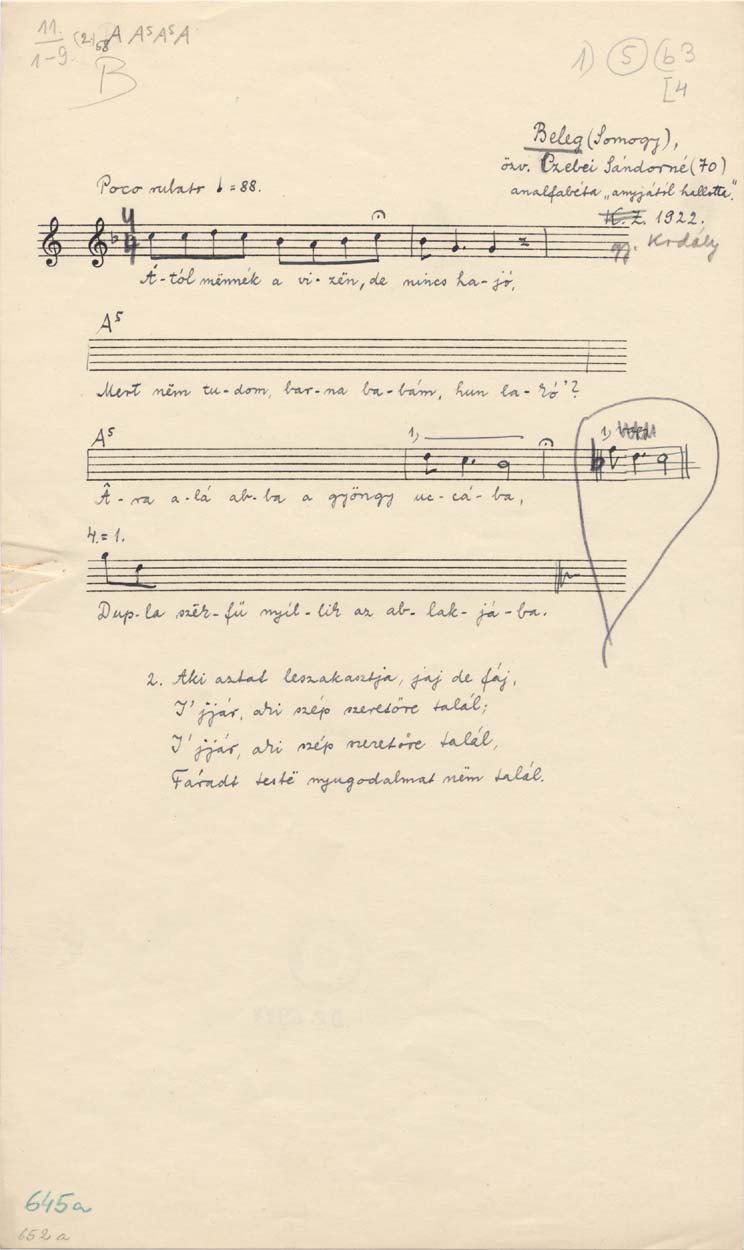 11.
1-9.
(2) 68 A A⁵A⁵A
B
1) 5 (b3
[4
Beleg (Somogy),
özv. Czebei Sándorné (70)
analfabéta „anyjától hallotta."
K. Z. 1922.
gy. Kodály
Poco rubato = 88.
4
4
Á-tól mënnék a vi-zën, de nincs ha-jó,
A⁵
Mert nëm tu-dom, bar-na ba-bám, hun la-kó'?
A⁵
1)
1)
Â-ra a-lá ab-ba a gyöngy uc-cá-ba,
4. = 1.
Dup-la szëk-fű nyíl-lik az ab-lak-já-ba.
2. Aki aztat leszakasztja, jaj de fáj,
I' jjár, aki szép szeretőre talál;
I' jjár, aki szép szeretőre talál,
Fáradt testë nyugodalmat nëm talál.
645a
652a